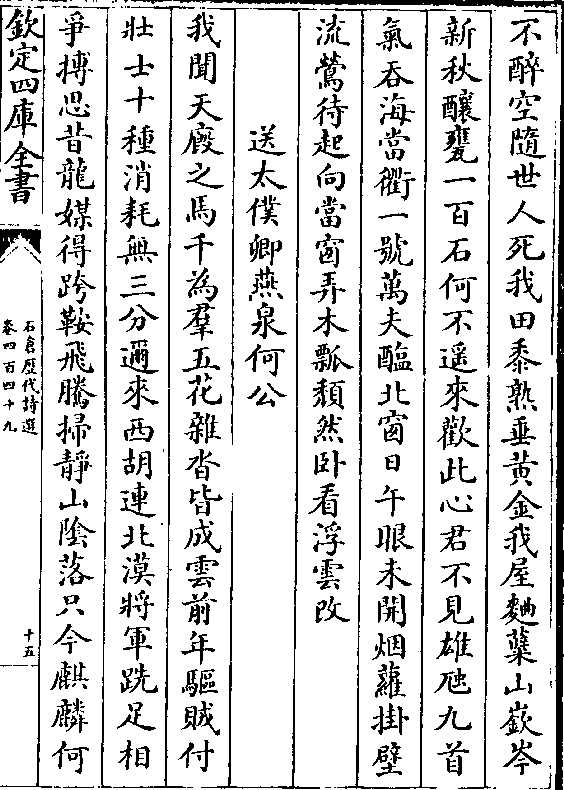 不醉空隨世人死我田黍熟垂黃金我屋麴蘖山嶔岑
新秋釀甕一百石何不遥來歡此心君不見雄虺九首
氣吞海當衢一號萬夫醢北窗日午眼未開烟蘿掛壁
流鶯待起向當窗弄木瓢頽然卧看浮雲改
送太僕卿燕泉何公
我聞天廐之馬千為羣五花雜沓皆成雲前年驅賊付
壯士十種消耗無三分邇來西胡連北漠將軍跣足相
爭搏思昔龍媒得跨鞍飛騰掃靜山隂落只今麒麟何
欽定四庫全書
石倉歷代詩選
卷四百四十九
十五